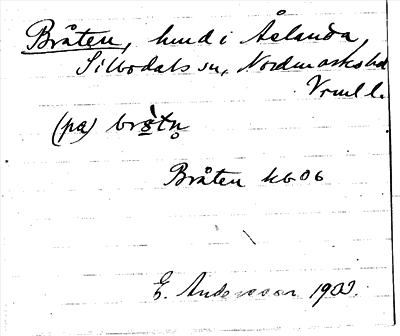 Bråten, hmd i Årlanda,
Silbodals sn, Nordmarks hd
Vrml.
(pa) br
Bråten kb 06
E. Andersson